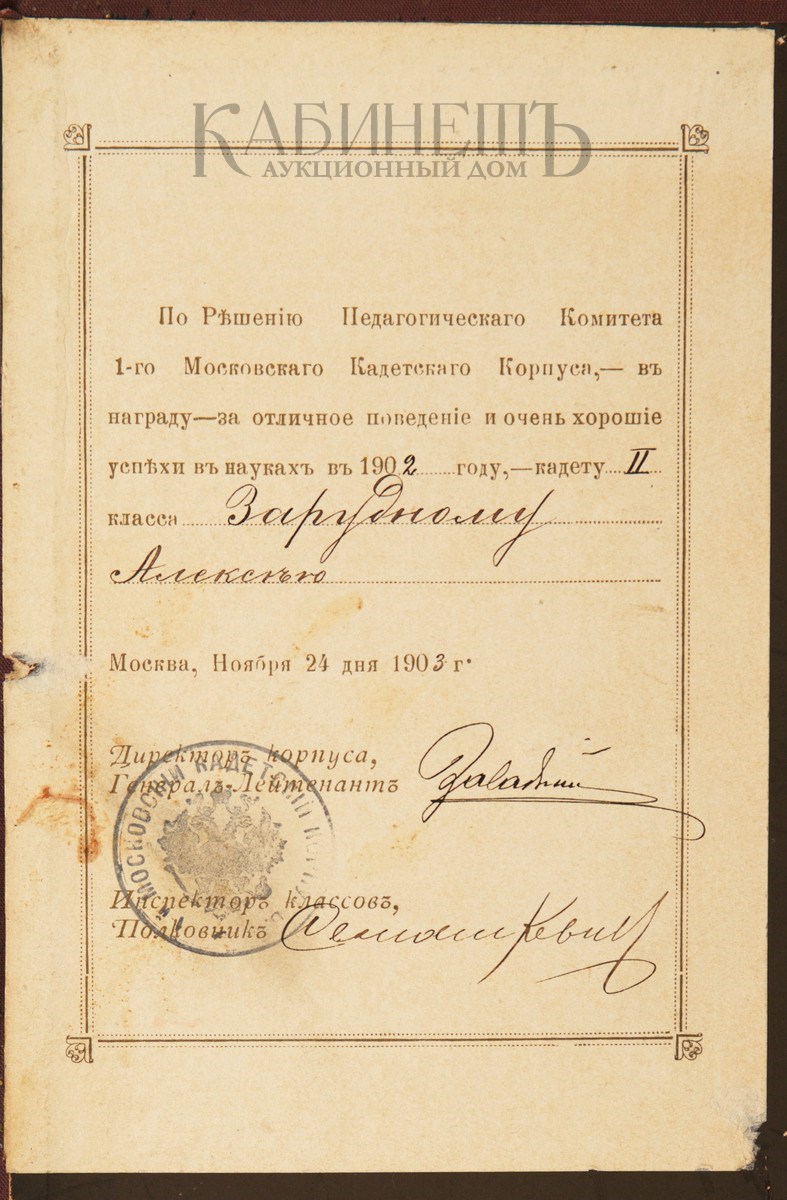 КАБИНЕТЪ
АУКЦИОННЫЙ ДОМ
По Рѣшенію Педагогическаго Комитета
1-го Московскаго Кадетскаго Корпуса,— въ
награду—за отличное поведеніе и очень хорошіе
успѣхи въ наукахъ въ 1902 году,—кадету II
класса Зарудному
Алексѣю
Москва, Ноября 24 дня 1903 г.
Директоръ корпуса,
Генералъ-Лейтенантъ
Инспекторъ классовъ,
Полковникъ
МОСКОВСКІЙ КАДЕТСКІЙ